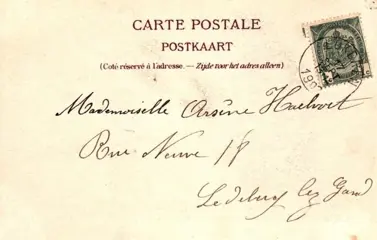 CARTE POSTALE
POSTKAART
(Coté réservé à l'adresse. — Zijde voor het adres alleen)
Mademoiselle Arsène Haelvoet
Rue Neuve 18
Ledeberg lez Gand